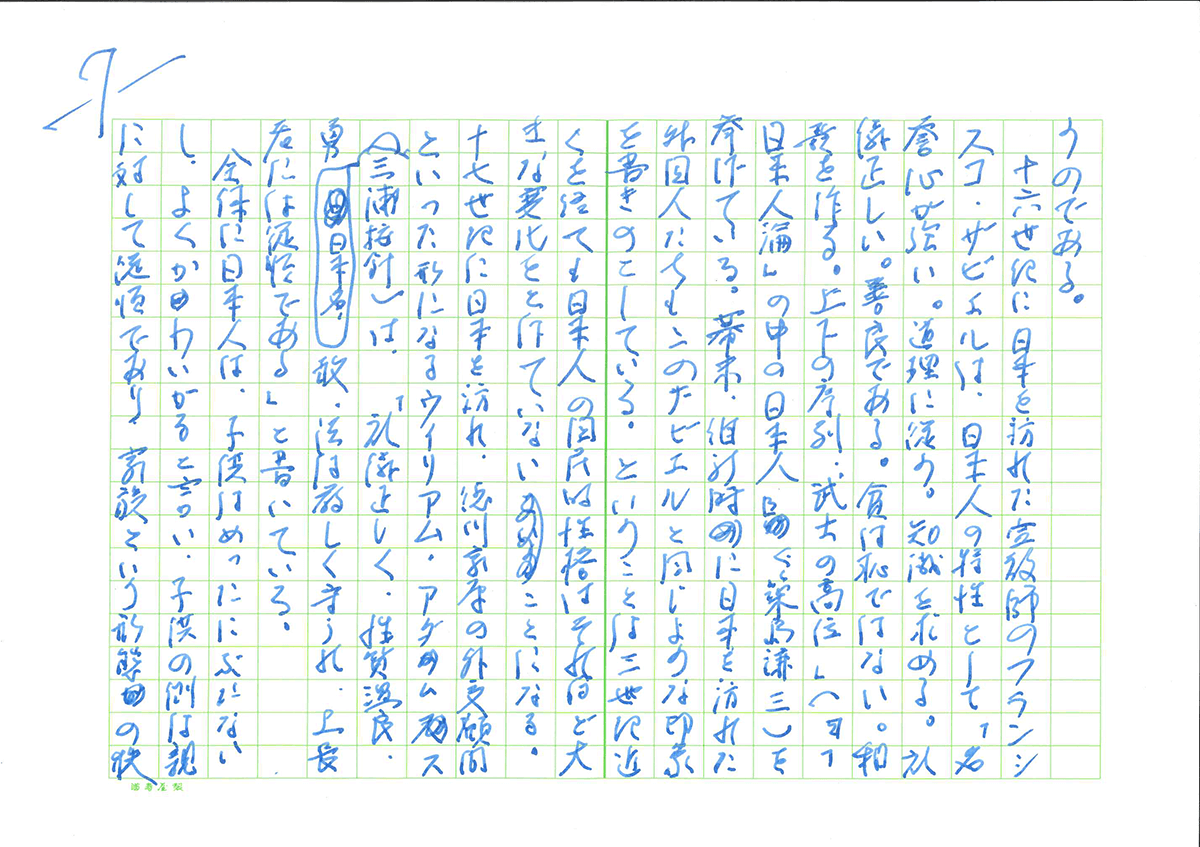 うのである。
十六世紀に日本を訪れた宣教師のフランシ
スコ・ザビエルは、日本人の特性として、「名
誉心が強い。道理に従う。知識を求める。礼
儀正しい。善良である。貧は恥ではない。和
歌を作る。上下の序列:武士の高位」(『ヨー
日本人論」の中の日本人』築島謙三)を
挙げている。幕末・維新時に日本を訪れた
外国人たちもこのザビエルと同じような印象
を書きのこしている。ということは三世紀近
くを経ても日本人の国民的性格はそれほど大
きな変化をとげていないことになる。
十七世紀に日本を訪れ、徳川家康の外交顧問
といった形になるウイリアム・アダムス
(三浦按針)は、「礼儀正しく、性質温良、
日本名・
勇敢・法は厳しく守られ、上長
者には従順である」と書いている。
全体に日本人は、子供はめったにぶたない
し、よくかわいがると言い、子供の側は親
に対して従順であり、家族という形の